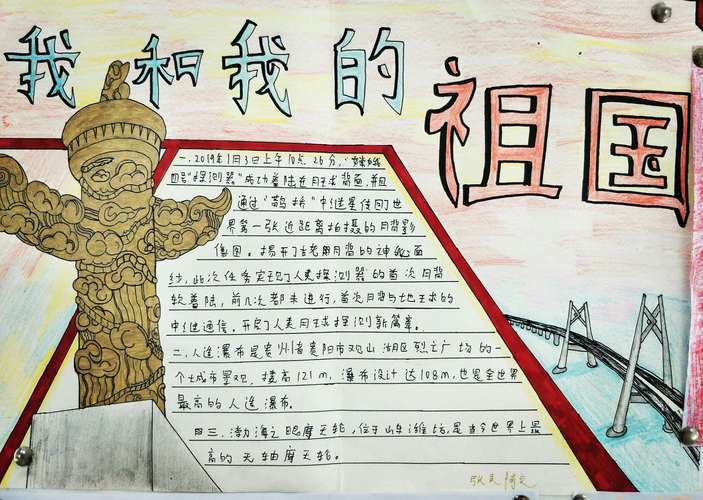 我和我的祖国
一.2019年1月3日上午10点26分,"嫦娥
四号"探测器"成功着陆在月球背面,并且
通过"鹊桥"中继星传回了世
界第一张近距离拍摄的月背影
像图。揭开了古老月背的神秘面
纱,此次任务实现了人类探测器的首次月背
软着陆,前几次都未进行,首次月背与地球的
中继通信,开启了人类月球探测新篇章。
二.人造瀑布是贵州省贵阳市观山湖区广场的一
个城市景观,楼高121m,瀑布设计达108m,也是全世界
最高的人造瀑布。
三.渤海之眼摩天轮,位于山东潍坊,是当今世界上最
高的无轴摩天轮。